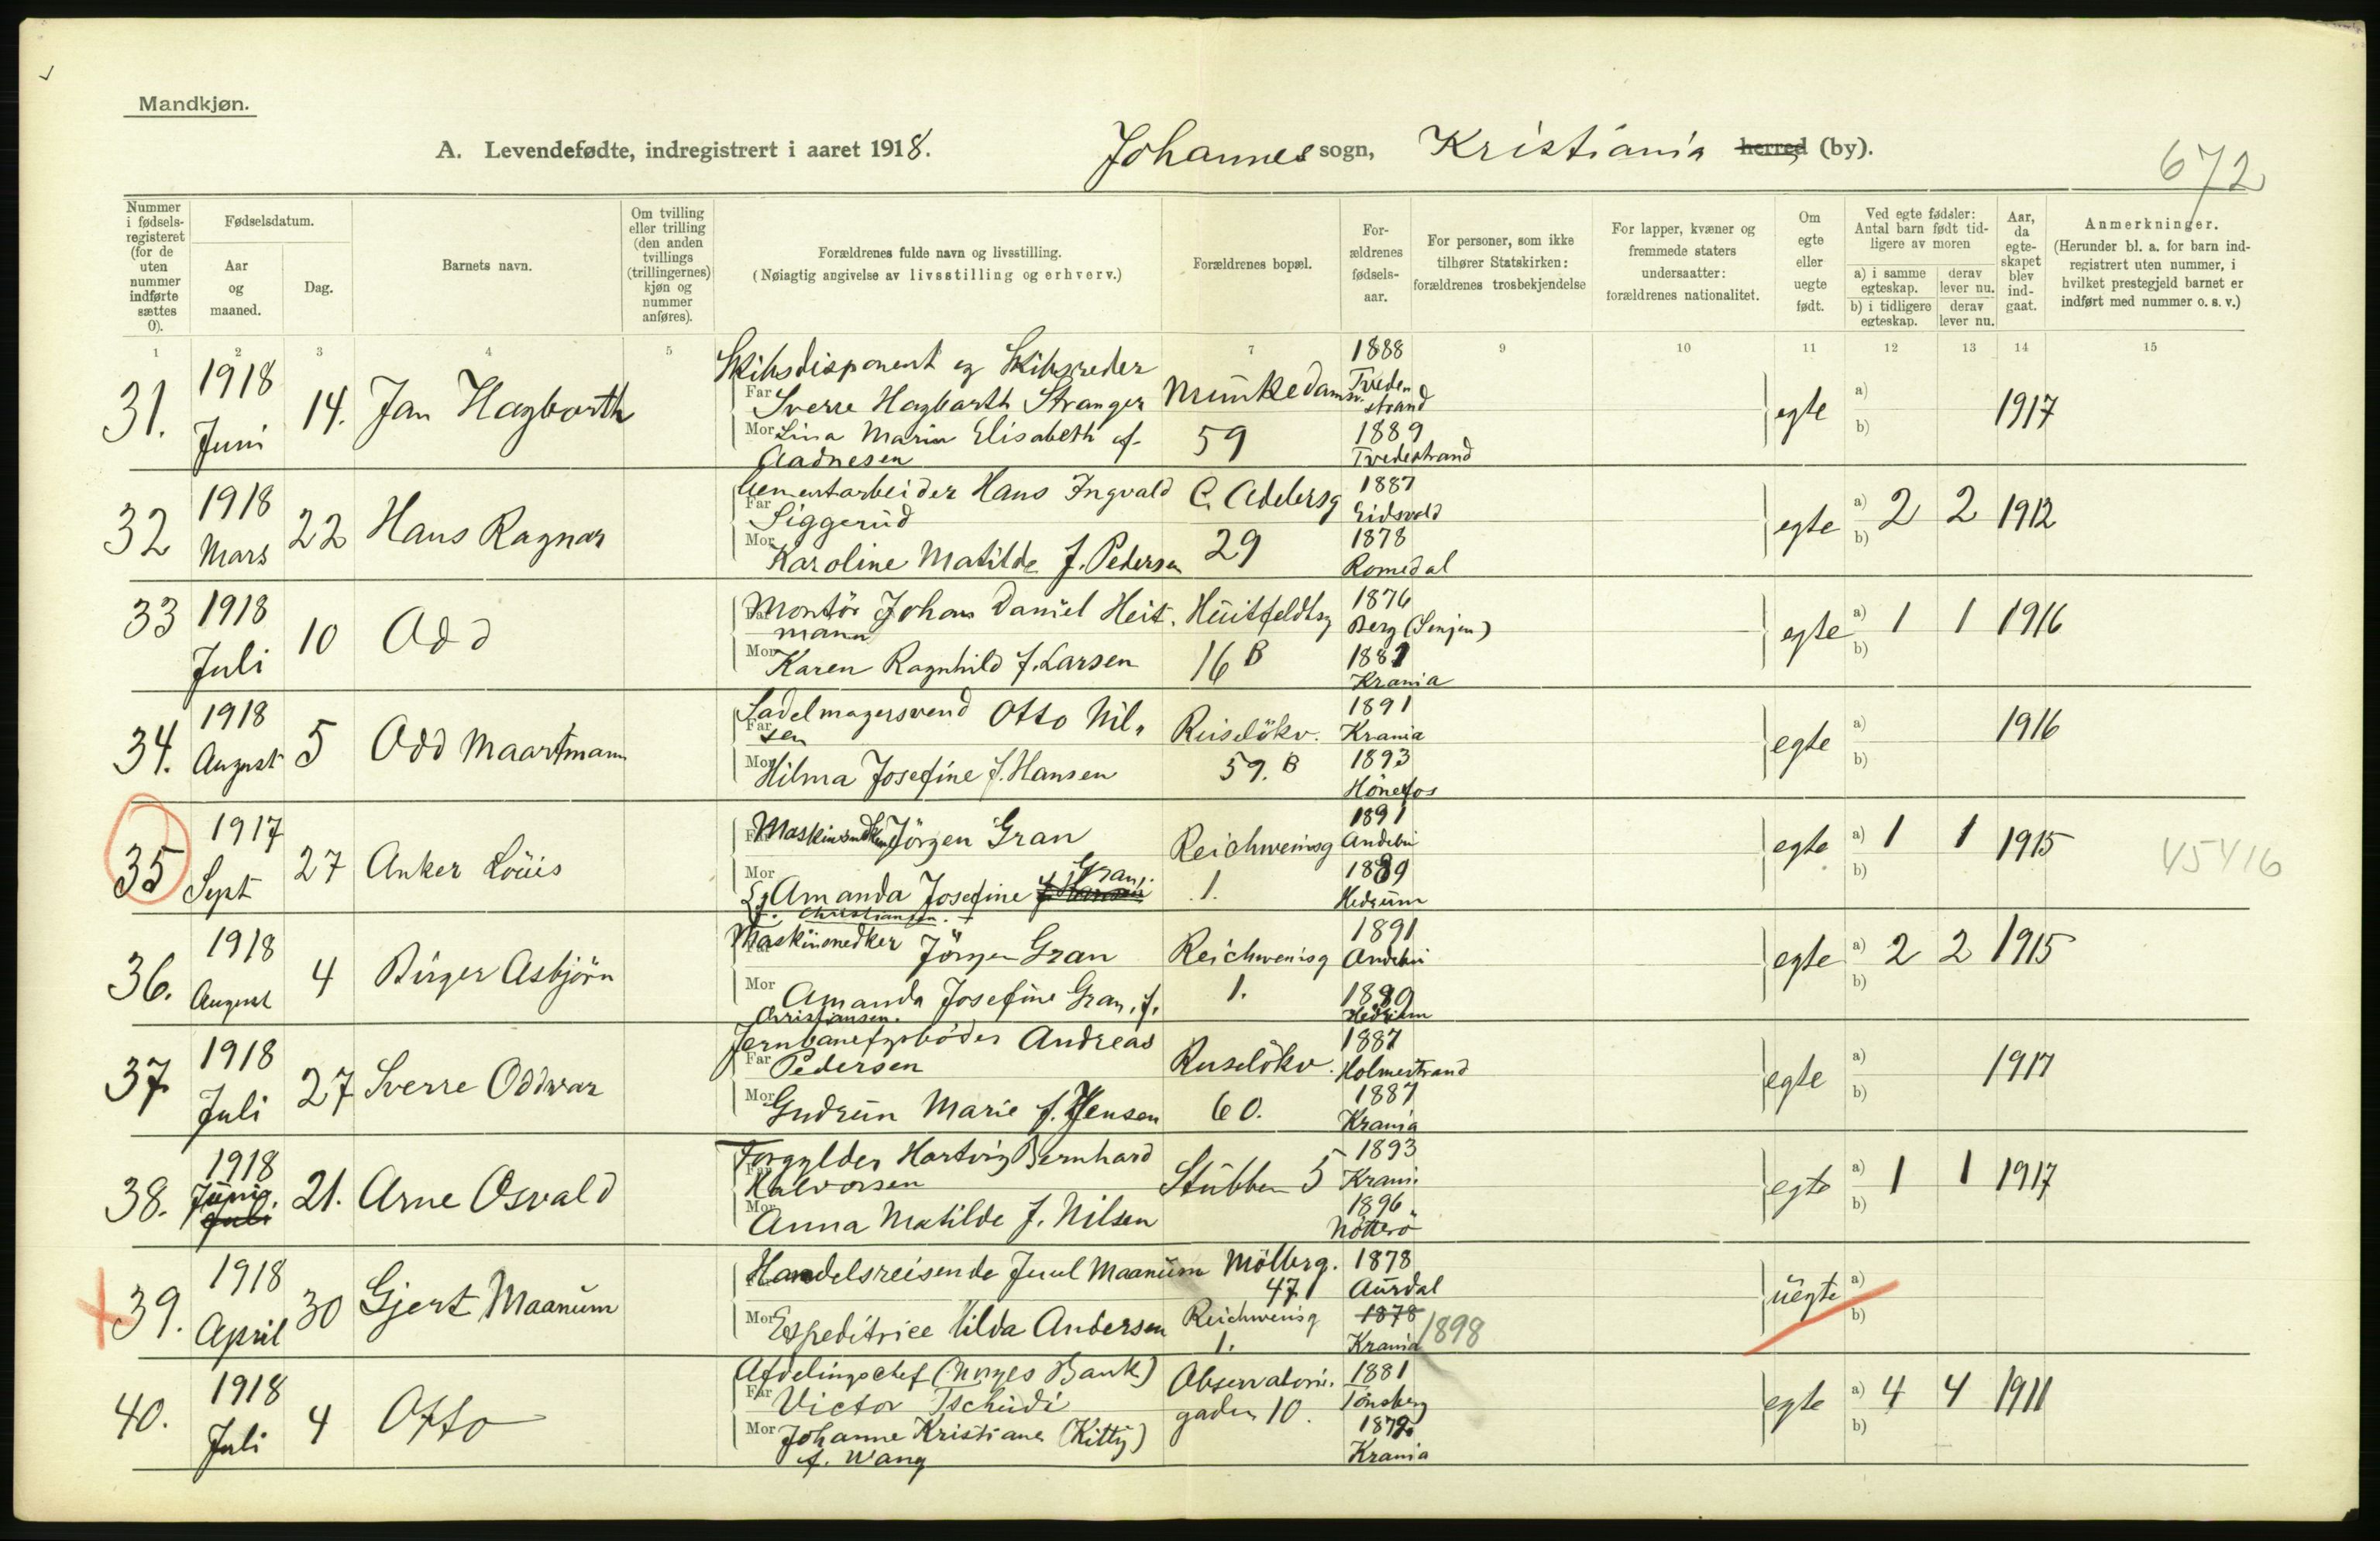 Mandkjøn.
A. Levendefødte, indregistrert i aaret 1918.
Johannes sogn, Kristiania herred (by).
672
Nummer i fødsels-registeret (for de uten nummer indførte sættes 0).
Fødselsdatum.
Aar og maaned.
Dag.
Barnets navn.
Om tvilling eller trilling (den anden tvillings (trillingernes) kjøn og nummer anføres).
Forældrenes fulde navn og livsstilling.
(Nøiagtig angivelse av livsstilling og erhverv.)
Forældrenes bopæl.
For-ældrenes fødsels-aar.
For personer, som ikke tilhører Statskirken: forældrenes trosbekjendelse
For lapper, kvæner og fremmede staters undersaatter: forældrenes nationalitet.
Om egte eller uegte født.
Ved egte fødsler: Antal barn født tid-ligere av moren
a) i samme egteskap. derav lever nu.
b) i tidligere egteskap. derav lever nu.
Aar, da egte-skapet blev ind-gaat.
Anmerkninger.
(Herunder bl. a. for barn ind-registrert uten nummer, i hvilket prestegjeld barnet er indført med nummer o. s. v.)
1 2 3 4 5 7 9 10 11 12 13 14 15
31. 1918 Juni 14. Jan Hagbarth
Skibsdisponent og Skibsreder
Far Sverre Hagbarth Stranger
Mor Lina Maria Elisabeth f.
Aadnesen
Munkedamsv. 59
1888 Tvedestrand
1889 Tvedestrand
egte a) b) 1917
32 1918 Mars 22 Hans Ragnar
Cementarbeider Hans Ingvald
Far Siggerud
Mor Karoline Matilde f. Pedersen
C. Adelersg 29
1887 Eidsvold
1878 Romedal
egte a) 2 2 1912 b)
33 1918 Juli 10 Odd
Far Montör Johan Daniel Heit-
mann
Mor Karen Ragnhild f. Larsen
Huitfeldtsg 16 B
1876 Berg (Senjen)
1881 Krania
egte a) 1 1 1916 b)
34. 1918 August 5 Odd Maartmann
Sadelmagersvend Otto Nil-
Far sen
Mor Hilma Josefine f. Hansen
Ruselökv. 59. B
1891 Krania
1893 Hönefos
egte a) 1916 b)
35 1917 Sept 27 Anker Louis
Far Maskinsnedker Jörgen Gran
Mor Amanda Josefine Gran,
f. Christiansen.
Reichweinsg 1.
1891 Andebu
1889 Hedrum
egte a) 1 1 1915 b)
45416
36. 1918 August 4 Birger Asbjörn
Far Maskinsnedker Jörgen Gran
Mor Amanda Josefine Gran, f.
Christiansen.
Reichweinsg 1.
1891 Andebu
1889 Hedrum
egte a) 2 2 1915 b)
37 1918 Juli 27 Sverre Oddvar
Jernbanefyrböder Andreas
Far Pedersen
Mor Gudrun Marie f. Jensen
Ruselökv. 60.
1887 Holmestrand
1887 Krania
egte a) 1917 b)
38. 1918 Juni Juli 21. Arne Osvald
Forgylder Hartvig Bernhard
Far Halvorsen
Mor Anna Matilde f. Nilsen
Stubben 5
1893 Krani.
1896 Nötterö
egte a) 1 1 1917 b)
39. 1918 April 30 Gjert Maanum
Far Handelsreisende Juul Maanum
Mor Expeditrice Hilda Andersen
Möllerg. 47
Reichweinsg 1.
1878 Aurdal
1878 Krania 1898
uegte a) b)
40. 1918 Juli 4 Otto
Afdelingschef (Norges Bank)
Far Victor Tschudi
Mor Johanne Kristiane (Kitty)
f. Wang
Observatorie-
gaden 10.
1881 Tönsberg
1879 Krania
egte a) 4 4 1911 b)